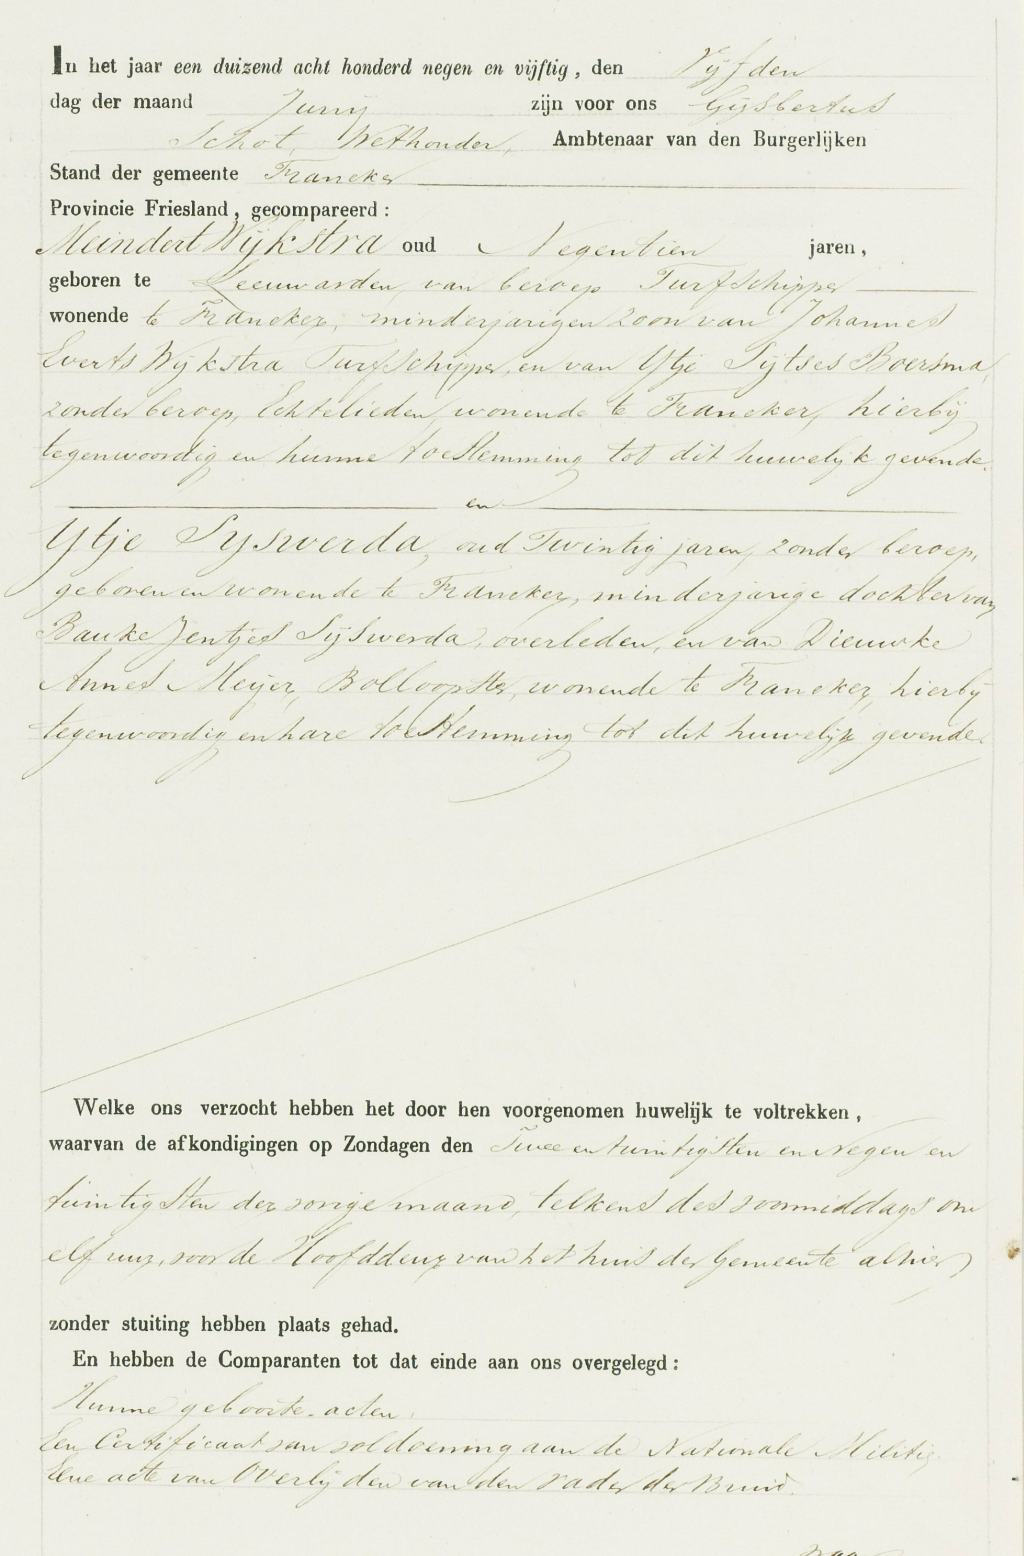 In het jaar een duizend acht honderd negen en vijftig, den Vijfden
dag der maand Junij zijn voor ons Gijsbertus
Schot, Wethouder, Ambtenaar van den Burgerlijken
Stand der gemeente Franeker
Provincie Friesland, gecompareerd:
Meindert Wijkstra oud Negentien jaren,
geboren te Leeuwarden, van beroep Turfschipper
wonende te Franeker, minderjarigen zoon van Johannes
Everts Wijkstra Turfschipper, en van Ytje Sijtses Boersma,
zonder beroep, Echtelieden, wonende te Franeker, hierbij
tegenwoordig en hunne toestemming tot dit huwelijk gevende.
en
Ytje Sijswerda, oud Twintig jaren, zonder beroep,
geboren en wonende te Franeker, minderjarige dochter van
Bauke Jentjes Sijswerda, overleden, en van Dieuwke
Annes Meijer, Bolloopster, wonende te Franeker, hierbij
tegenwoordig en hare toestemming tot dit huwelijk gevende.
Welke ons verzocht hebben het door hen voorgenomen huwelijk te voltrekken,
waarvan de afkondigingen op Zondagen den Twee en twintigsten en Negen en
twintigsten der vorige maand, telkens des voormiddags om
elf uur, voor de Hoofddeur van het huis der Gemeente alhier,
zonder stuiting hebben plaats gehad.
En hebben de Comparanten tot dat einde aan ons overgelegd:
Hunne geboorte-acten.
Een Certificaat van voldoening aan de Nationale Militie.
Eene acte van Overlijden van den vader der Bruid.